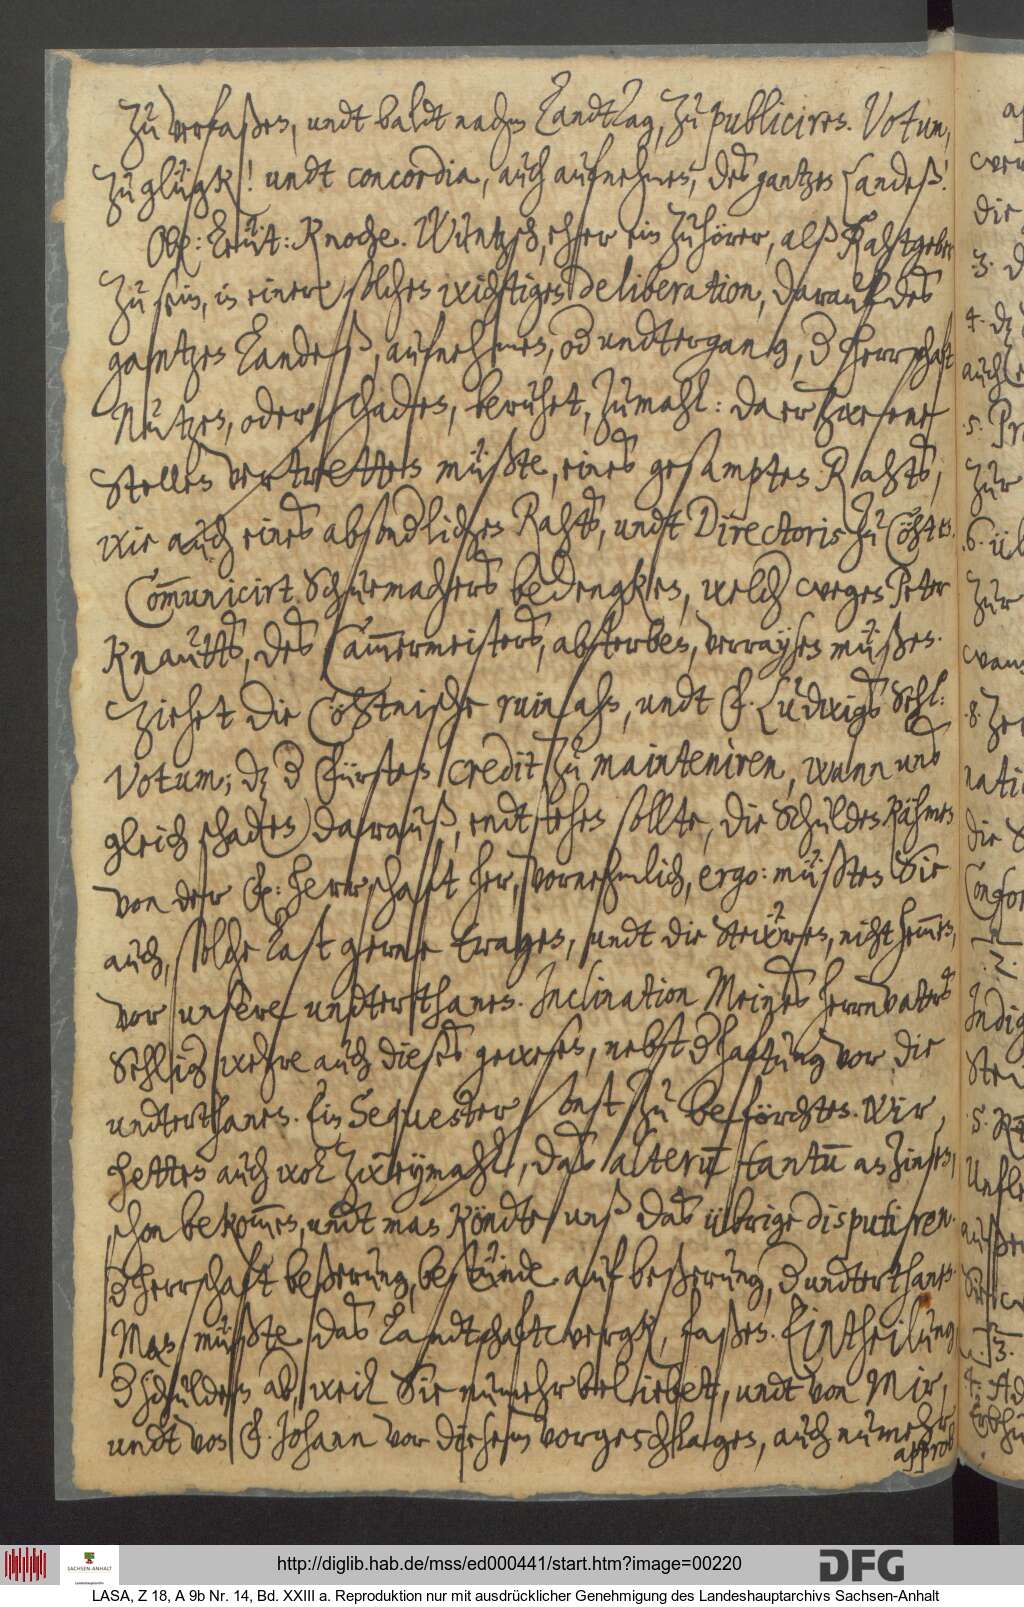 Zu verfaßen, undt baldt nachm Landt Tag, zu publiciren. Votum,
zu glügk! undt concordia, auch aufnehmen, des gantzen Landeß!
Ob: Leut: Knoche. Wüntzsch, eher ein zuhörer, alß Rahtgeber
zu sein, in einer solchen wichtigen deliberation, darauf des
gantzen Landeß, aufnehmen, od undtergang, d herrschaft
Nutzen, oder schaden, beruhet, zumahl: da er zwe
Stellen vertretten müßte, eines gesampten Rahts,
wie auch eines absondlichen Rahts, undt Directoris zu Cöhten.
Com̅unicirt Schuemachers bedengken, welch wegen Peter
Knautts, des Cam̅ermeisters, absterben, verraysen müßen.
Ziehet die Cöhtnische ruin ahn, undt F. Ludwigs Sehl:
Votum; dz d Fürsten credit zu mainteniren, wann uns
gleich schaden darauß, endtstehen sollte, die Schulden kähmen
von der F: herrschaft her, vornehmlich, ergo: müßten Sie
auch, solche Last gerne tragen, undt die Steuren, nicht hem̅en,
vor unsere undterthanen. Inclination Meines herrnvaters
Sehlig wehre auch dieses gewesen, nebst d haftung vor die
undterthanen. Ein Sequester sonst zu beförchten. Wir
hetten auch wol zweymahl, das alterum̅ tantum̅ an zinsen,
schon bekom̅en, undt man köndte unß das übrige disputiren.
d herrschaft beßerung, bestünde auf beßerung, d undterthanen.
Man müßte das Landtschaftwergk, faßen. Eintheilung
d schulden ab, weil Sie nunmehr beliebet, undt von Mir,
undt von F. Johann vor diesem vorgeschlagen, auch nunmehr
approb
http://diglib.hab.de/mss/ed000441/start.htm?image=00220
DFG
SACHSEN-ANHALT
LASA, Z 18, A 9b Nr. 14, Bd. XXIII a. Reproduktion nur mit ausdrücklicher Genehmigung des Landeshauptarchivs Sachsen-Anhalt